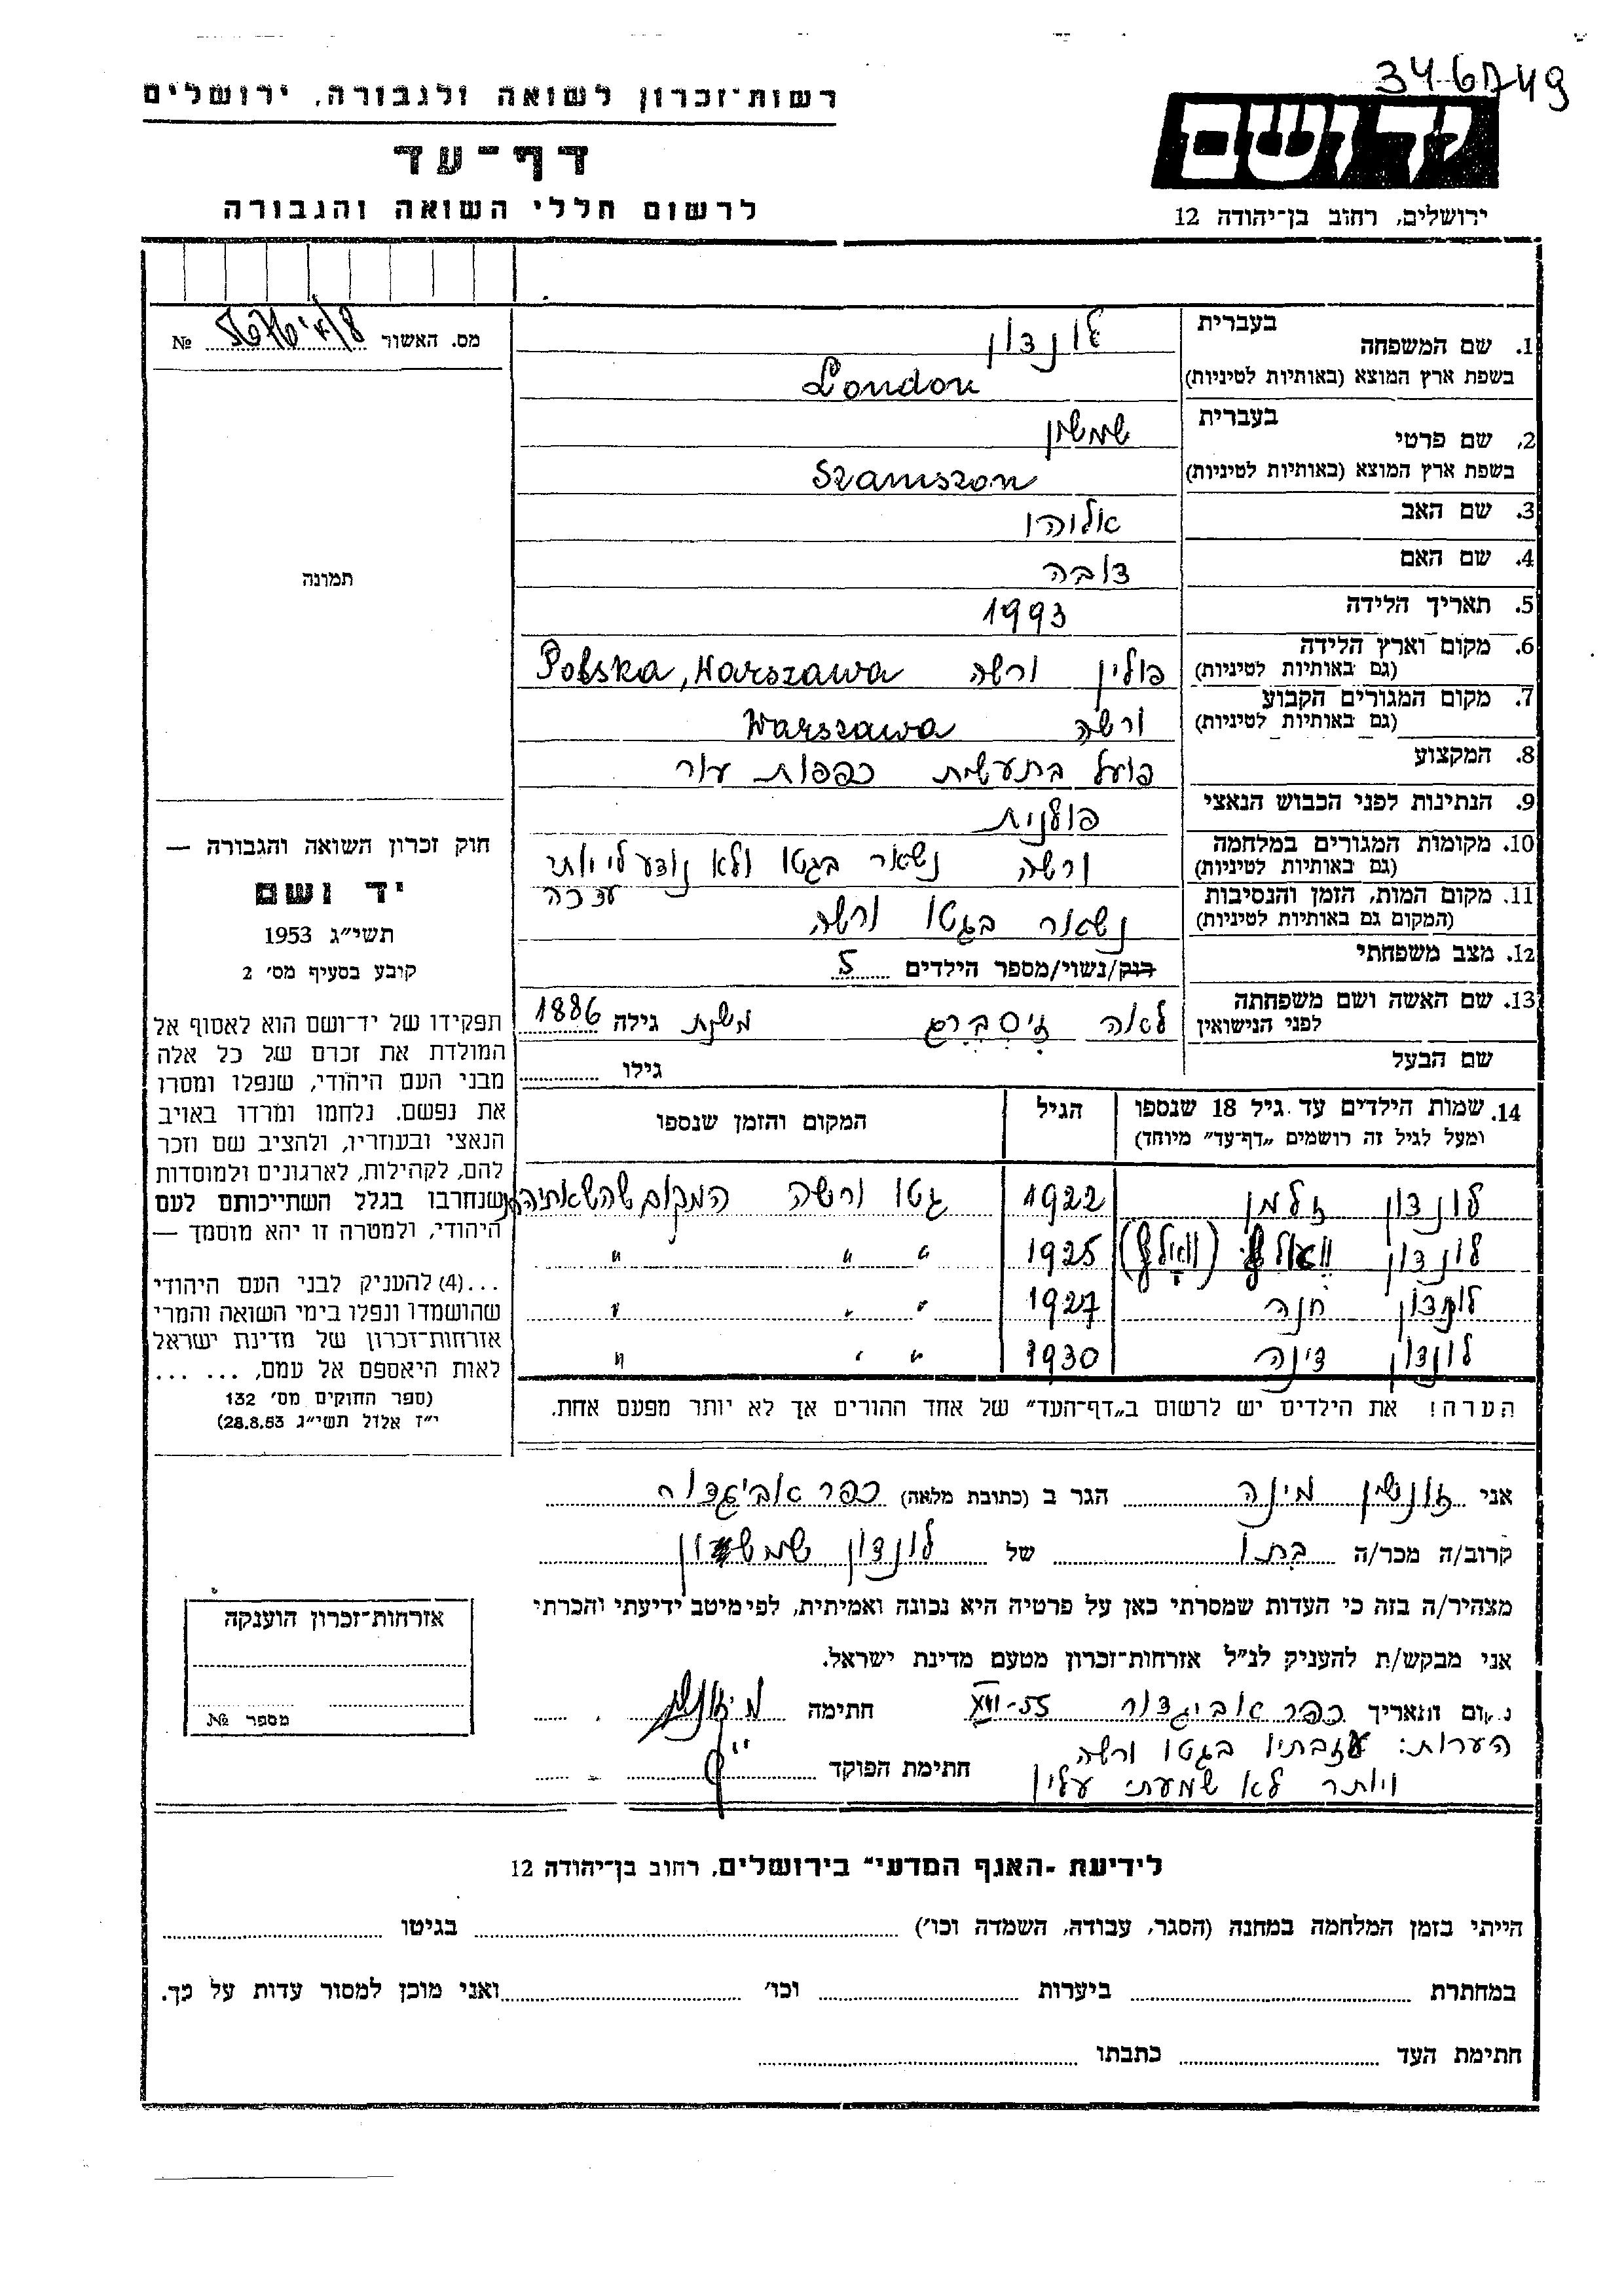 346749
רשות־זכרון לשואה ולגבורה, ירושלים
ידושם
דף־עד
לרשום חללי השואה והגבורה
ירושלים, רחוב בן־יהודה 12
מס. האשור №
1. שם המשפחה בעברית לונדון
בשפת ארץ המוצא (באותיות לטיניות) London
2. שם פרטי בעברית שמשון
בשפת ארץ המוצא (באותיות לטיניות) Szamszon
3. שם האב אלוהו
4. שם האם דובה
5. תאריך הלידה 1993
6. מקום וארץ הלידה (גם באותיות לטיניות) פולין ורשה Polska, Warszawa
7. מקום המגורים הקבוע (גם באותיות לטיניות) ורשה Warszawa
8. המקצוע פועל בתעשית כפפות עור
9. הנתינות לפני הכבוש הנאצי פולנית
10. מקומות המגורים במלחמה (גם באותיות לטיניות) ורשה נשאר בגטו ולא נודע לי יותר
11. מקום המות, הזמן והנסיבות (המקום גם באותיות לטיניות) נשאר בגטו ורשה
12. מצב משפחתי רוק/נשוי/מספר הילדים 5
13. שם האשה ושם משפחתה לפני הנישואין לאה זיסברג משנת גילה 1886
שם הבעל גילו
14. שמות הילדים עד גיל 18 שנספו (ומעל לגיל זה רושמים „דף־עד” מיוחד) הגיל המקום והזמן שנספו
לונדון זלמן 1922 גטו ורשה המקום
לונדון 1925 " " "
לונדון חנה 1927 " " "
לונדון דינה 1930 " " "
הערה! את הילדים יש לרשום ב„דף־העד” של אחד ההורים אך לא יותר מפעם אחת.
תמונה
חוק זכרון השואה והגבורה —
יד ושם
תשי״ג 1953
קובע בסעיף מס׳ 2
תפקידו של יד־ושם הוא לאסוף אל
המולדת את זכרם של כל אלה
מבני העם היהודי, שנפלו ומסרו
את נפשם. נלחמו ומרדו באויב
הנאצי ובעוזריו, ולהציב שם וזכר
להם, לקהילות, לארגונים ולמוסדות
שנחרבו בגלל השתייכותם לעם
היהודי, ולמטרה זו יהא מוסמך —
...(4) להעניק לבני העם היהודי
שהושמדו ונפלו בימי השואה והמרי
אזרחות־זכרון של מדינת ישראל
לאות היאספם אל עמם, ... ...
(ספר החוקים מס׳ 132
י״ז אלול תשי״ג 28.8.53)
אני זונשין מינה הגר ב (כתובת מלאה) כפר אביגדור
קרוב/ה מכר/ה בתו של לונדון שמשון
מצהיר/ה בזה כי העדות שמסרתי כאן על פרטיה היא נכונה ואמיתית, לפי מיטב ידיעתי והכרתי
אני מבקש/ת להעניק לנ״ל אזרחות־זכרון מטעם מדינת ישראל.
מקום ותאריך כפר אביגדור XII-55 חתימה
הערות: עזבתיו בגטו ורשה
ויותר לא שמעתי עליו
חתימת הפוקד
אזרחות־זכרון הוענקה
מספר №
לידיעת „האגף המדעי” בירושלים, רחוב בן־יהודה 12
הייתי בזמן המלחמה במחנה (הסגר, עבודה, השמדה וכו׳) בגיטו
במחתרת ביערות וכו׳ ואני מוכן למסור עדות על כך.
חתימת העד כתבתו